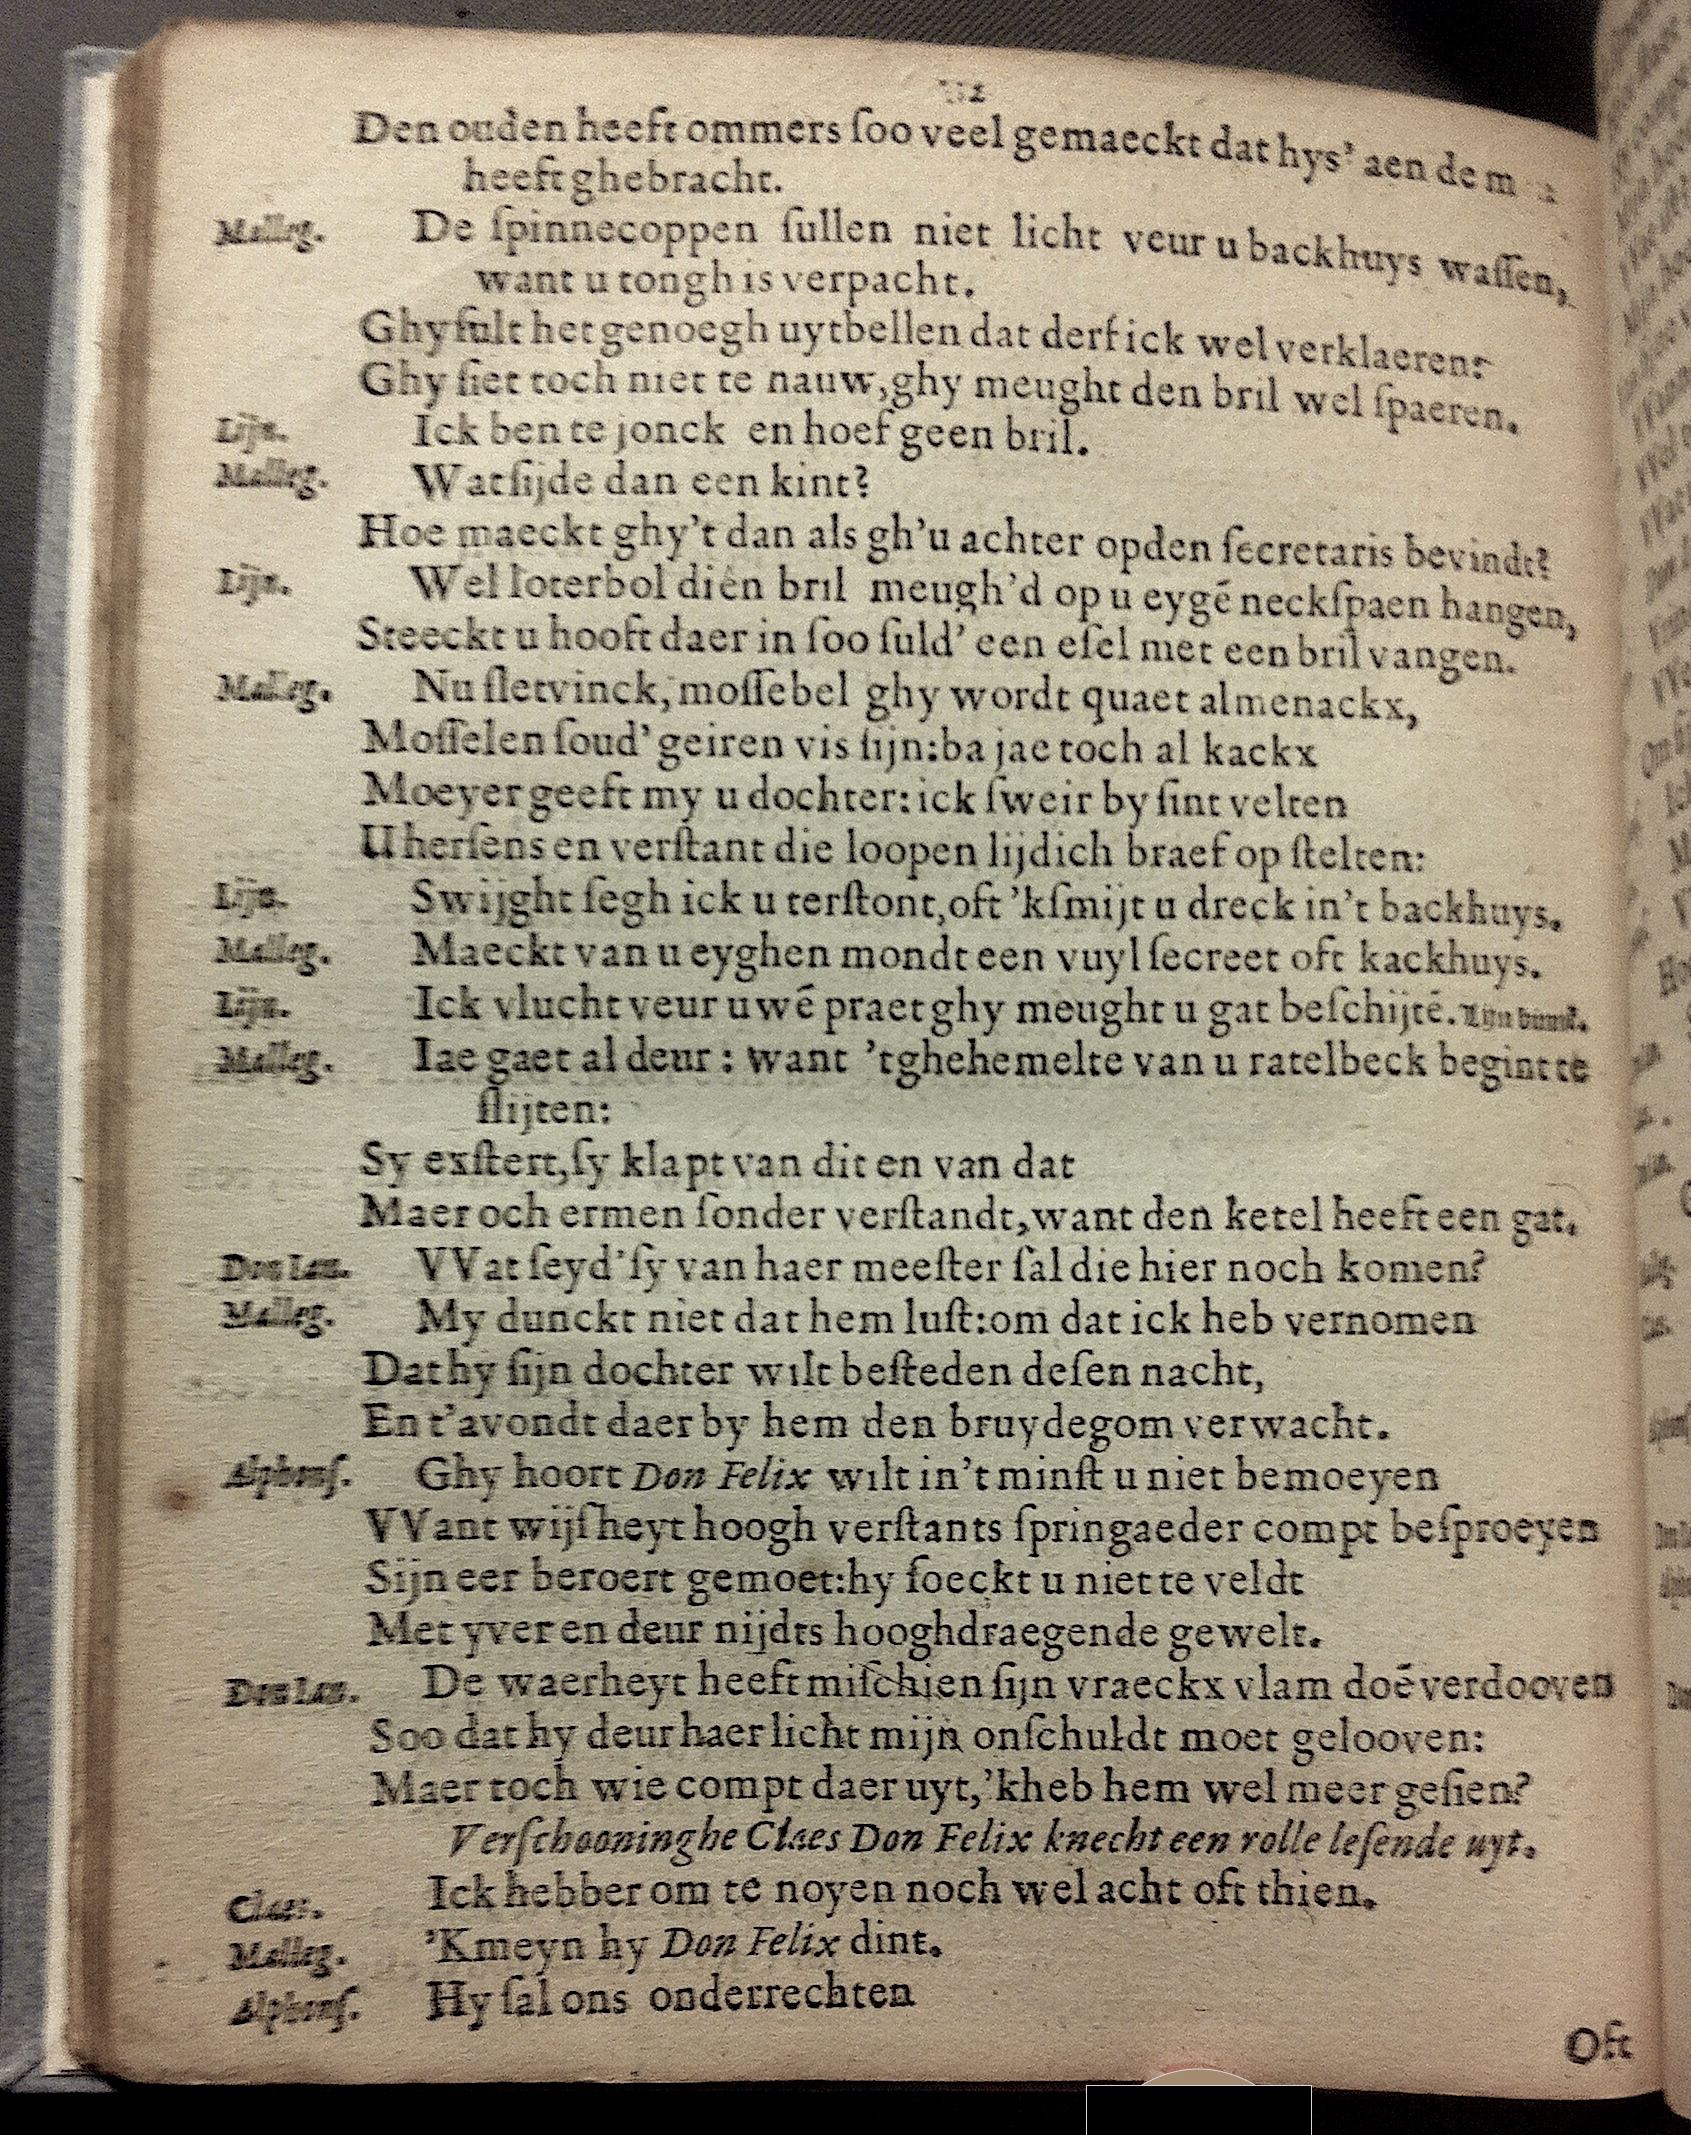 Den ouden heeft ommers ſoo veel gemaeckt dat hys' aen de
heeft ghebracht.
Malleg. De ſpinnecoppen ſullen niet licht veur u backhuys waſſen,
want u tongh is verpacht.
Ghy ſult het genoegh uytbellen dat derf ick wel verklaeren:
Ghy ſiet toch niet te nauw, ghy meught den bril wel ſpaeren.
Lijn. Ick ben te jonck en hoef geen bril.
Malleg. Wat ſijde dan een kint?
Hoe maeckt ghy't dan als gh'u achter op den ſecretaris bevindt?
Lijn. Wel loterbol dien bril meugh'd op u eygē neckſpaen hangen,
Steeckt u hooft daer in ſoo ſuld' een eſel met een bril vangen.
Malleg. Nu ſletvinck, moſſebel ghy wordt quaet almenackx,
Moſſelen ſoud' geiren vis ſijn: ba jae toch al kackx
Moeyer geeft my u dochter: ick ſweir by ſint velten
U herſens en verſtant die loopen lijdich braef op ſtelten:
Lijn. Swijght ſegh ick u terſtont, oft 'kſmijt u dreck in't backhuys.
Malleg. Maeckt van u eyghen mondt een vuyl ſecreet oft kackhuys.
Lijn. Ick vlucht veur uwē praet ghy meught u gat beſchijtē. Lijn
Malleg. Iae gaet al deur: want 'tghehemelte van u ratelbeck begint te
ſlijten:
Sy exſtert, ſy klapt van dit en van dat
Maer och ermen ſonder verſtandt, want den ketel heeft een gat.
Don Lau. VVat ſeyd' ſy van haer meeſter ſal die hier noch komen?
Malleg. My dunckt niet dat hem luſt: om dat ick heb vernomen
Dat hy ſijn dochter wilt beſteden deſen nacht,
En t'avondt daer by hem den bruydegom verwacht.
Alphonſ. Ghy hoort Don Felix wilt in't minſt u niet bemoeyen
VVant wijſheyt hoogh verſtants ſpringaeder compt beſproeyen
Sijn eer beroert gemoet: hy ſoeckt u niet te veldt
Met yver en deur nijdts hooghdraegende gewelt.
Don Lau. De waerheyt heeft miſchien ſijn vraeckx vlam doē verdooven
Soo dat hy deur haer licht mijn onſchuldt moet gelooven:
Maer toch wie compt daer uyt, 'kheb hem wel meer geſien?
Verſchooninghe Claes Don Felix knecht een rolle leſende uyt.
Claes. Ick hebber om te noyen noch wel acht oft thien.
Malleg. 'Kmeyn hy Don Felix dint.
Alphonſ. Hy ſal ons onderrechten
Oft